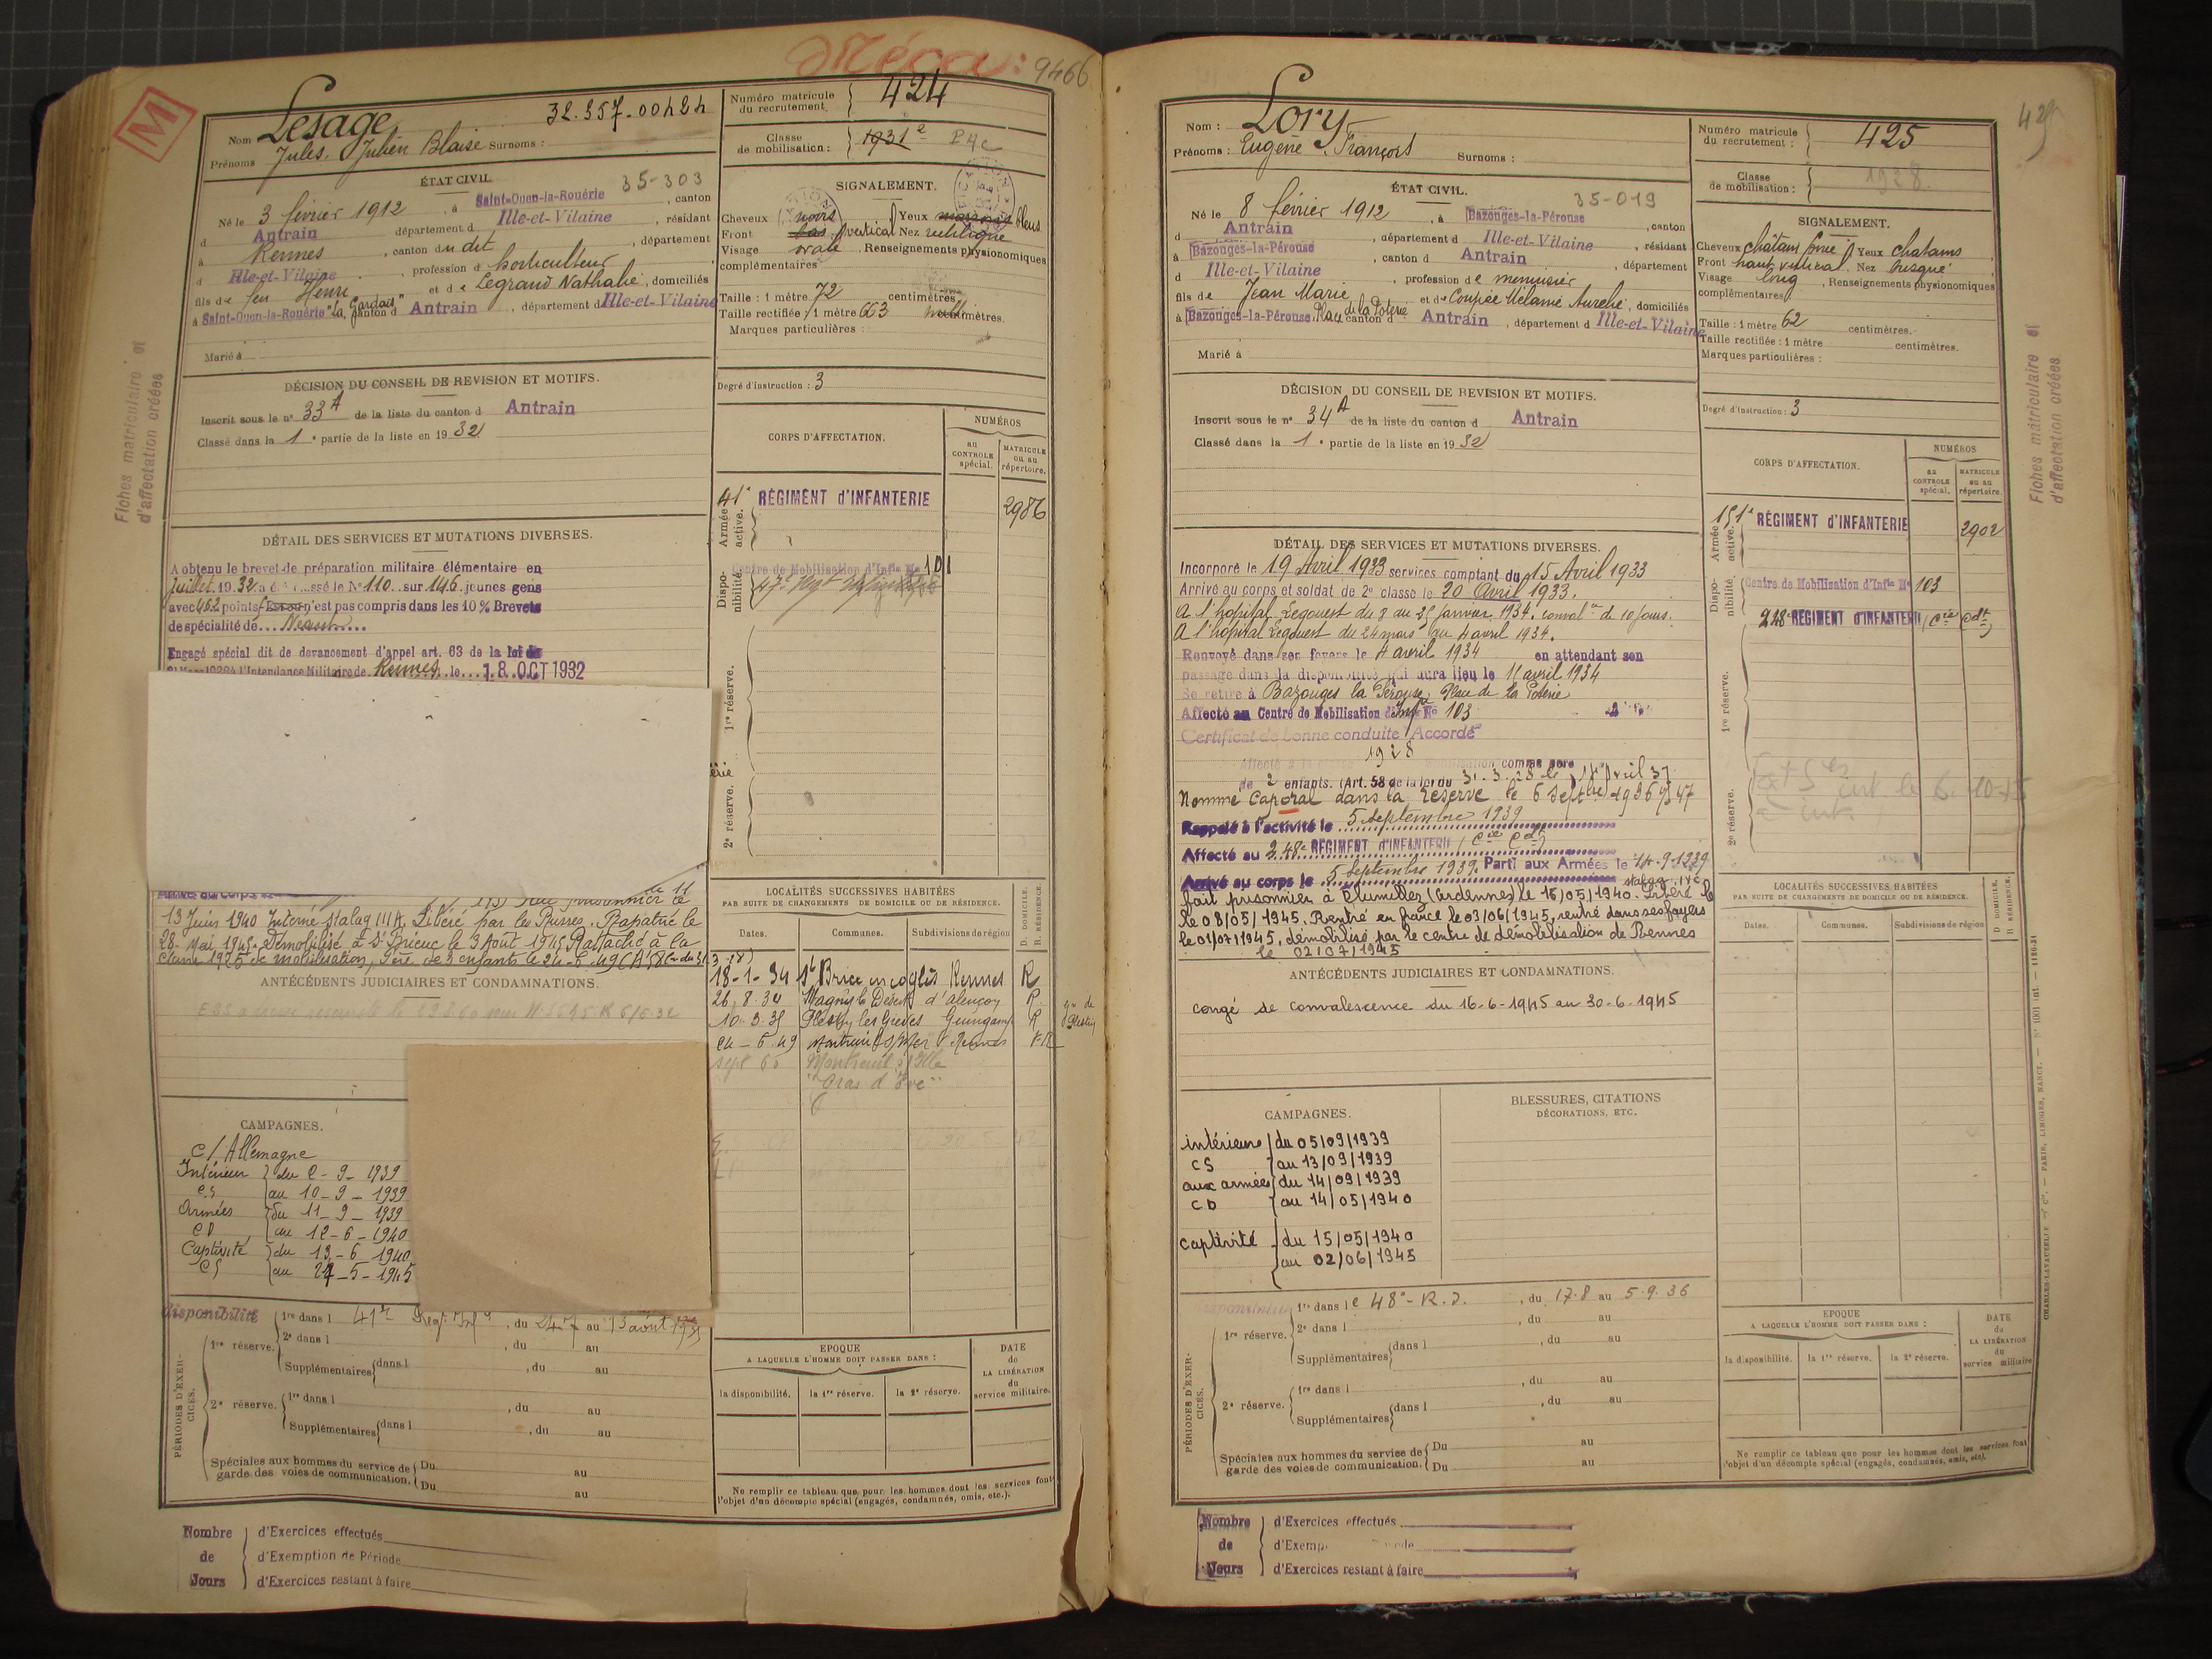 Méca : 9466
M
Nom Lesage 32.357.00424
Prénoms Jules, Julien Blaise Surnoms :
Numéro matricule du recrutement 424
Classe de mobilisation : 1931 P4c
ÉTAT CIVIL 35-303
Né le 3 février 1912, à Saint-Ouen-la-Rouërie, canton
d Antrain département d Ille-et-Vilaine, résidant
à Rennes, canton du dit, département
d Ille-et-Vilaine, profession d horticulteur
fils de feu Henri et de Legrand Nathalie, domiciliés
à Saint-Ouen-la-Rouërie "la Gardais" canton d Antrain, département d Ille-et-Vilaine
Marié à
SIGNALEMENT.
Cheveux noirs Yeux marrons bleus
Front bas vertical Nez rectiligne
Visage ovale. Renseignements physionomiques
complémentaires
Taille : 1 mètre 72 centimètres.
Taille rectifiée : 1 mètre 663 millimètres.
Marques particulières :
Degré d'instruction : 3
DÉCISION DU CONSEIL DE REVISION ET MOTIFS.
Inscrit sous le n° 33 A de la liste du canton d Antrain
Classé dans la 1e partie de la liste en 1932
CORPS D'AFFECTATION.
NUMÉROS
au CONTROLE spécial.
MATRICULE ou au répertoire.
Armée active.
41e RÉGIMENT d'INFANTERIE 2986
Disponibilité.
Centre de Mobilisation d'Infie N° 101
1re réserve.
2e réserve.
DÉTAIL DES SERVICES ET MUTATIONS DIVERSES.
A obtenu le brevet de préparation militaire élémentaire en
Juillet 1932 a été classé le N° 110 sur 146 jeunes gens
avec 462 points n'est pas compris dans les 10 % Brevets
de spécialité de Néant
Engagé spécial dit de devancement d'appel art. 63 de la loi du
l'Intendance Militaire de Rennes le 18 OCT 1932
13 Juin 1940 Interné stalag III A. Libéré par les Russes. Rapatrié le
28 Mai 1945. Démobilisé à St Brieuc le 3 Août 1945 Rattaché à la
classe 1925 de mobilisation, père de 3 enfants le 24-6-49
ANTÉCÉDENTS JUDICIAIRES ET CONDAMNATIONS.
LOCALITÉS SUCCESSIVES HABITÉES
PAR SUITE DE CHANGEMENTS DE DOMICILE OU DE RÉSIDENCE.
D. DOMICILE. R. RÉSIDENCE.
Dates. Communes. Subdivisions de région
18-1-34 St Brice en coglès Rennes R
26.8.34 Magny le Désert d'alençon R
10.3.35 Plestin les Grèves Guingamp R
24-6-49 Rennes
sept 65 Montreuil s/ Ille
CAMPAGNES.
C/ Allemagne
Intérieur du 2-9-1939
CS au 10-9-1939
Armées du 11-9-1939
CD au 12-6-1940
Captivité du 13-6-1940
CS au 27-5-1945
PÉRIODES D'EXERCICES.
disponibilité
1re réserve. 1re dans l 41e Régt Infie, du 24-7 au 13 août 1935
2e dans l , du au
Supplémentaires dans l , du au
2e réserve. 1re dans l , du au
Supplémentaires dans l , du au
Spéciales aux hommes du service de garde des voies de communication. Du au
Du au
EPOQUE
A LAQUELLE L'HOMME DOIT PASSER DANS :
la disponibilité. la 1re réserve. la 2e réserve.
DATE de LA LIBÉRATION du service militaire.
Ne remplir ce tableau que pour les hommes dont les services font
l'objet d'un décompte spécial (engagés, condamnés, omis, etc.).
Nombre de Jours
d'Exercices effectués
d'Exemption de Période
d'Exercices restant à faire
Fiches matriculaire et d'affectation créées
Nom : Lory
Prénoms : Eugène François Surnoms :
Numéro matricule du recrutement : 425
Classe de mobilisation : 1928
425
ÉTAT CIVIL. 35-019
Né le 8 février 1912, à Bazouges-la-Pérouse, canton
d Antrain, département d Ille-et-Vilaine, résidant
à Bazouges-la-Pérouse, canton d Antrain, département
d Ille-et-Vilaine, profession de menuisier
fils de Jean Marie et de Coupée Mélanie Aurélie, domiciliés
à Bazouges-la-Pérouse, Place de la Poterie canton d Antrain, département d Ille-et-Vilaine
Marié à
SIGNALEMENT.
Cheveux châtain foncé Yeux chatains
Front haut vertical Nez busqué
Visage long, Renseignements physionomiques
complémentaires
Taille : 1 mètre 62 centimètres.
Taille rectifiée : 1 mètre centimètres.
Marques particulières :
Degré d'instruction : 3
DÉCISION DU CONSEIL DE REVISION ET MOTIFS.
Inscrit sous le n° 34 A de la liste du canton d Antrain
Classé dans la 1e partie de la liste en 1932
CORPS D'AFFECTATION.
NUMÉROS
au CONTROLE spécial.
MATRICULE ou au répertoire.
Armée active.
151e RÉGIMENT d'INFANTERIE 2902
Disponibilité.
Centre de Mobilisation d'Infie N° 103
248e RÉGIMENT d'INFANTERIE (Cie Cdt)
1re réserve.
2e réserve.
DÉTAIL DES SERVICES ET MUTATIONS DIVERSES.
Incorporé le 19 Avril 1933 services comptant du 15 Avril 1933
Arrivé au corps et soldat de 2e classe le 20 Avril 1933.
A l'hopital Legouest du 8 au 25 Janvier 1934. conval. de 10 jours.
A l'hopital Legouest du 24 mars au 4 avril 1934.
Renvoyé dans ses foyers le 4 avril 1934 en attendant son
passage dans la disponibilité qui aura lieu le 11 avril 1934
Se retire à Bazouges la Pérouse, Place de la Poterie
Affecté au Centre de Mobilisation d'Infie N° 103
Certificat de bonne conduite "Accordé"
1928
Affecté à la classe de mobilisation comme père
de 2 enfants. (Art. 58 de la loi du 31-3-28 le 1er Avril 37
Nommé Caporal dans la réserve le 6 Septbre 1936
Rappelé à l'activité le 5 septembre 1939
Affecté au 248e RÉGIMENT d'INFANTERIE (Cie Cdt)
Arrivé au corps le 5 Septembre 1939. Parti aux Armées le 14-9-1939
stalag IV C
fait prisonnier à (Ardennes) le 15/05/1940. Libéré le
le 09/05/1945. Rentré en france le 03/06/1945, rentré dans ses foyers
le 01/07/1945, démobilisé par le centre de démobilisation de Rennes
le 02/07/1945
ANTÉCÉDENTS JUDICIAIRES ET CONDAMNATIONS.
congé de convalescence du 16-6-1945 au 30-6-1945
LOCALITÉS SUCCESSIVES HABITÉES
PAR SUITE DE CHANGEMENTS DE DOMICILE OU DE RÉSIDENCE.
D DOMICILE. R RÉSIDENCE.
Dates. Communes. Subdivisions de région
CAMPAGNES.
BLESSURES, CITATIONS
DÉCORATIONS, ETC.
intérieure du 05/09/1939
CS au 13/09/1939
aux armées du 14/09/1939
CD au 14/05/1940
captivité du 15/05/1940
au 02/06/1945
PÉRIODES D'EXERCICES.
disponibilité
1re réserve. 1re dans le 48e R.I., du 17.8 au 5.9.36
2e dans l , du au
Supplémentaires dans l , du au
2e réserve. 1re dans l , du au
Supplémentaires dans l , du au
Spéciales aux hommes du service de garde des voies de communication. Du au
Du au
EPOQUE
A LAQUELLE L'HOMME DOIT PASSER DANS :
la disponibilité. la 1re réserve. la 2e réserve.
DATE de LA LIBÉRATION du service militaire
Ne remplir ce tableau que pour les hommes dont les services font
l'objet d'un décompte spécial (engagés, condamnés, omis, etc).
Nombre de Jours
d'Exercices effectués
d'Exemp
d'Exercices restant à faire
Fiches matriculaire et d'affectation créées
CHARLES-LAVAUZELLE et Cie. — PARIS, LIMOGES, NANCY. — N° 1001 int. — 1126-31